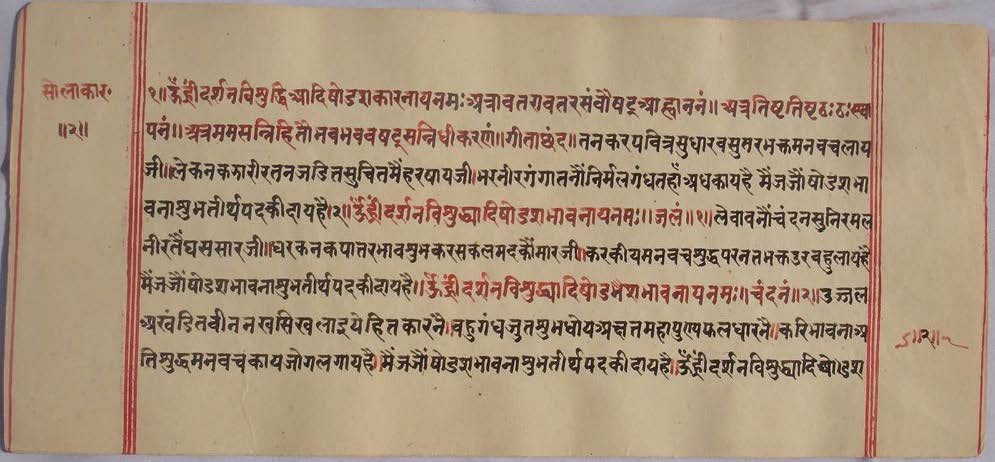 सोलाकार॰
॥२॥
१॥ॐह्रीं दर्शनविशुद्धिआदिषोडशकारनायनमः अत्रावतरावतरसंवौषट् आह्वाननं॥ अत्रतिष्टतिष्टठःठःस्था
पनं॥ अत्रममसन्निहितौभवभववषट्सन्निधीकरणं॥ गीताछंद॥ तनकरपवित्रसुधारवसुतरभक्तमनवचलाय
जी॥ लेकनकझारीरतनजडितसुचितमैंहरषायजी॥ भरनीरगंगातनौंनिर्मलगंधतहांअधकायहै मैंजजौंषोडशभा
वनाशुभतीर्थपदकीदायहै।२॥ ॐह्रीं दर्शनविशुद्ध्यादिषोडशभावनायनमः॥ जलं॥१॥ लेवावनौंचंदनसुनिरमल
नीरतैंघससारजी॥ धरकनकपातरभावशुभकरसकलमदकौंमारजी॥ करकीयमनवचशुद्धपरनतभक्तउरवहुलायहै
मैंजजौंषोडशभावनाशुभतीर्थपदकीदायहै॥ ॐह्रीं दर्शनविशुद्ध्यादिषोडशभावनायनमः॥ चंदनं॥२॥ उज्जल
अखंडितवीननखसिखलाइयेहितकारनै॥ वहुगंधजुतशुभधोयअक्षतमहापुण्यफलधारनै॥ करिभावनाअ
तिशुद्धमनवचकायजोगलगायहै॥ मैंजजौंषोडशभावनाशुभतीर्थपदकीदायहै॥ ॐह्रीं दर्शनविशुद्ध्यादिषोडश
॥२॥